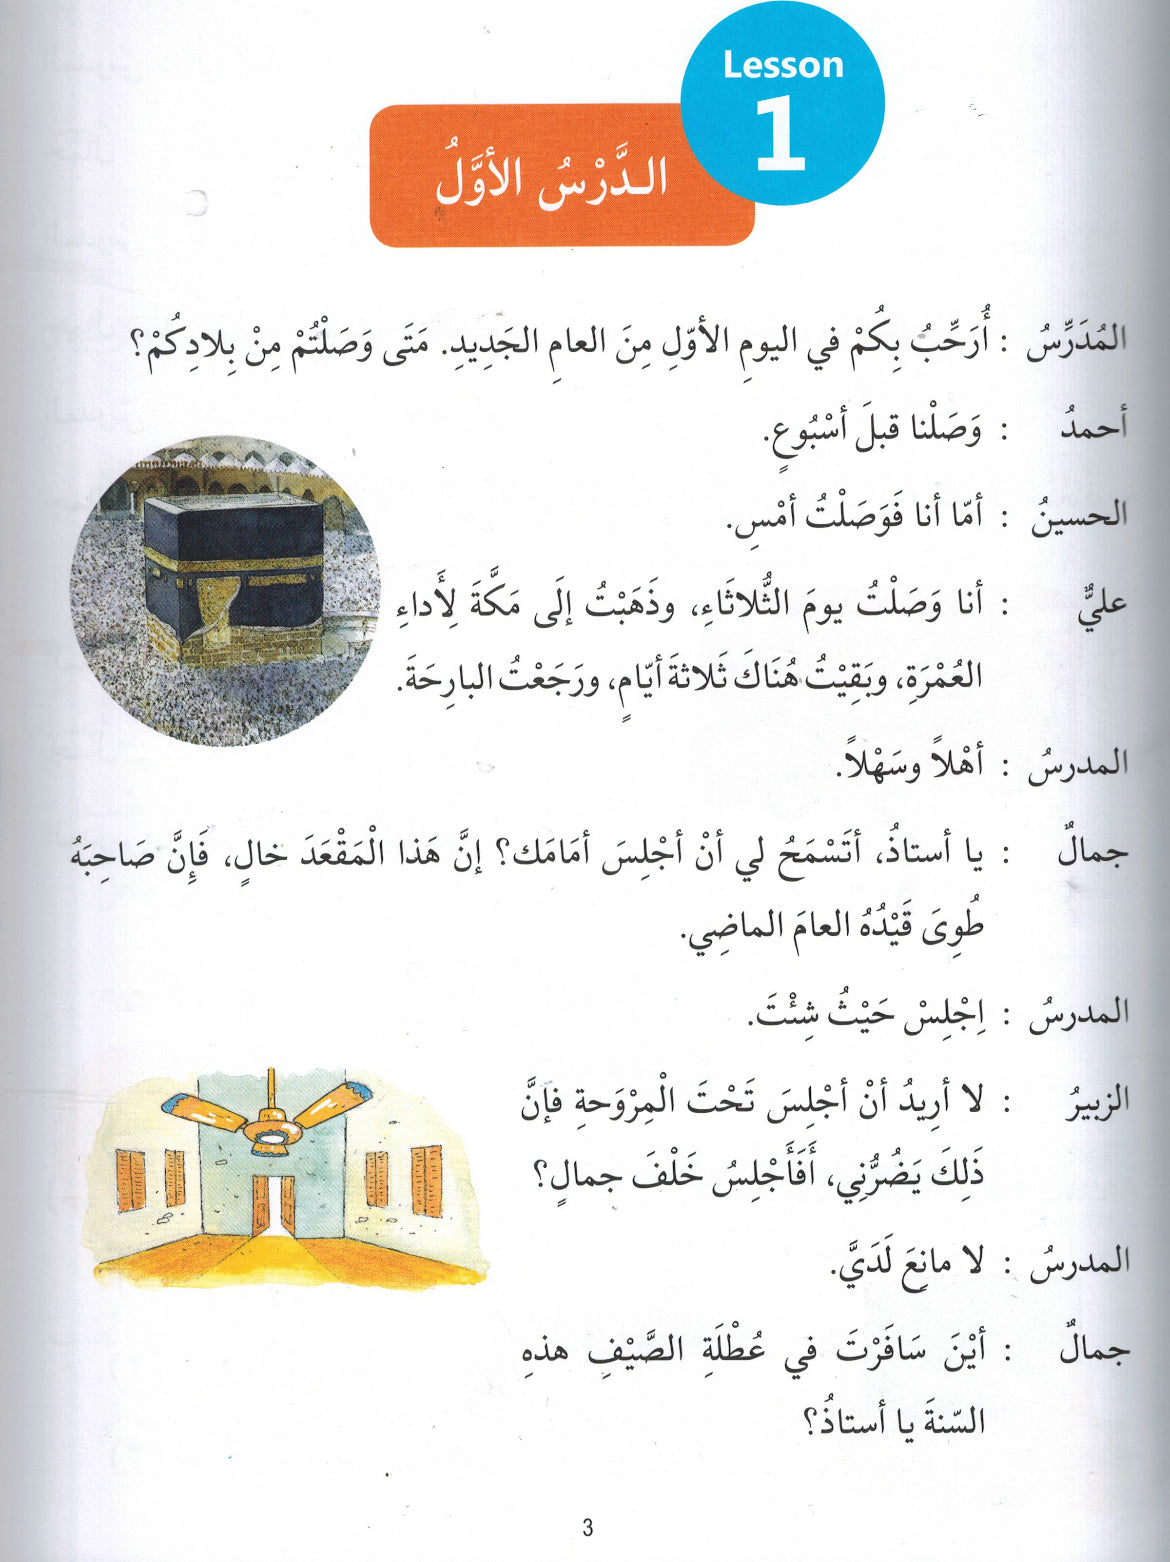 Lesson
1
الـدَّرْسُ الأوَّلُ
المُدَرِّسُ : أُرَحِّبُ بِكُمْ في اليومِ الأوّلِ مِنَ العامِ الجَدِيدِ. مَتَى وَصَلْتُمْ مِنْ بِلادِكُمْ؟
أحمدُ : وَصَلْنا قبلَ أسْبُوعٍ.
الحسينُ : أمّا أنا فَوَصَلْتُ أمْسِ.
عليٌّ : أنا وَصَلْتُ يومَ الثُّلاثَاءِ، وذَهَبْتُ إلَى مَكَّةَ لِأَداءِ
العُمْرَةِ، وبَقِيْتُ هُنَاكَ ثَلاثةَ أيّامٍ، ورَجَعْتُ البارِحَةَ.
المدرسُ : أهْلاً وسَهْلاً.
جمالٌ : يا أستاذُ، أتَسْمَحُ لي أنْ أجْلِسَ أمَامَك؟ إنَّ هَذا الْمَقْعَدَ خالٍ، فَإِنَّ صَاحِبَهُ
طُوِىَ قَيْدُهُ العامَ الماضِي.
المدرسُ : اِجْلِسْ حَيْثُ شِئْتَ.
الزبيرُ : لا أرِيدُ أنْ أجْلِسَ تَحْتَ الْمِرْوَحةِ فإنَّ
ذَلِكَ يَضُرُّنِي، أَفَأَجْلِسُ خَلْفَ جمالٍ؟
المدرسُ : لا مانِعَ لَدَيَّ.
جمالٌ : أيْنَ سَافَرْتَ في عُطْلَةِ الصَّيْفِ هذهِ
السّنةَ يا أستاذُ؟
3